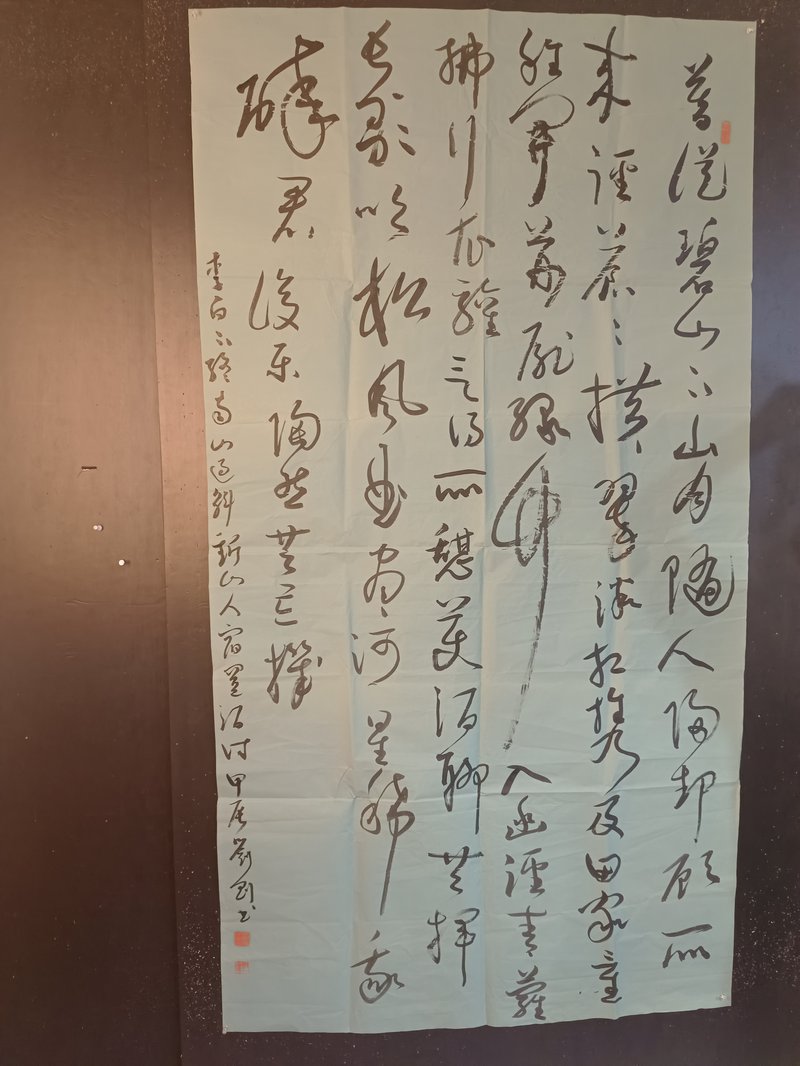 暮從碧山下山月隨人歸却顧所
来徑蒼〻橫翠微相攜及田家童
稚開荊扉綠竹入幽徑青蘿
拂行衣歡言得所憩美酒聊共揮
長歌吟松風曲盡河星稀我
醉君復樂陶然共忘機
李白下終南山過斛斯山人宿置酒诗甲辰劉剛书